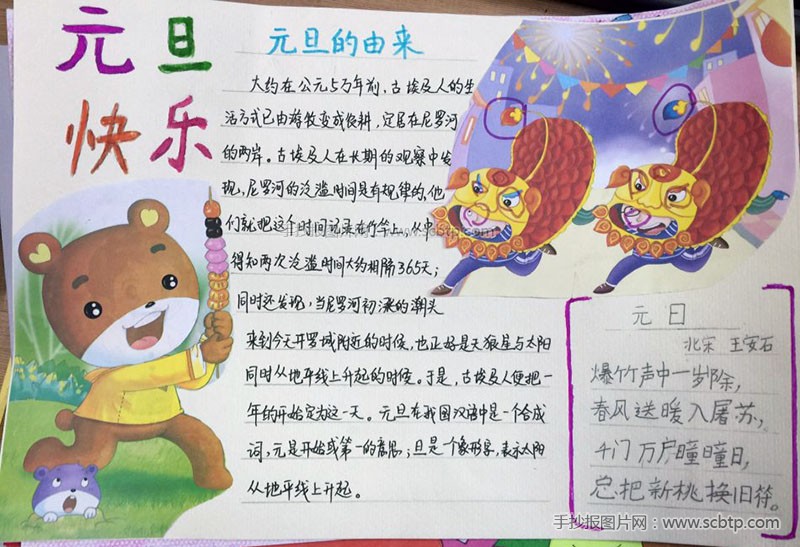 元旦
快乐
元旦的由来
大约在公元5万年前，古埃及人的生
活方式已由游牧变成农耕，定居在尼罗河
的两岸。古埃及人在长期的观察中发
现，尼罗河的泛滥时间是有规律的，他
们就把这个时间记录在竹竿上，从中
得知两次泛滥时间大约相隔365天；
同时还发现，当尼罗河初涨的潮头
来到今天开罗域附近的时候，也正好是天狼星与太阳
同时从地平线上升起的时候。于是，古埃及人便把一
年的开始定为这一天。元旦在我国汉语中是一个合成
词，元是开始或第一的意思；旦是个象形字，表示太阳
从地平线上升起。
元日
北宋 王安石
爆竹声中一岁除，
春风送暖入屠苏，
千门万户曈曈日，
总把新桃换旧符。
手抄报图片网：www.scbtp.com